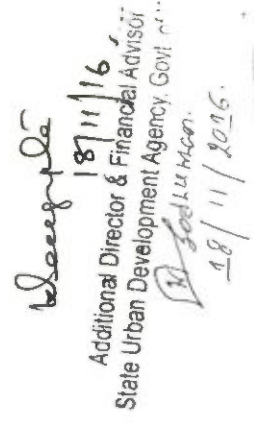 18/11/16
Additional Director & Financial Advisor
State Urban Development Agency, Govt
18/11/2016.